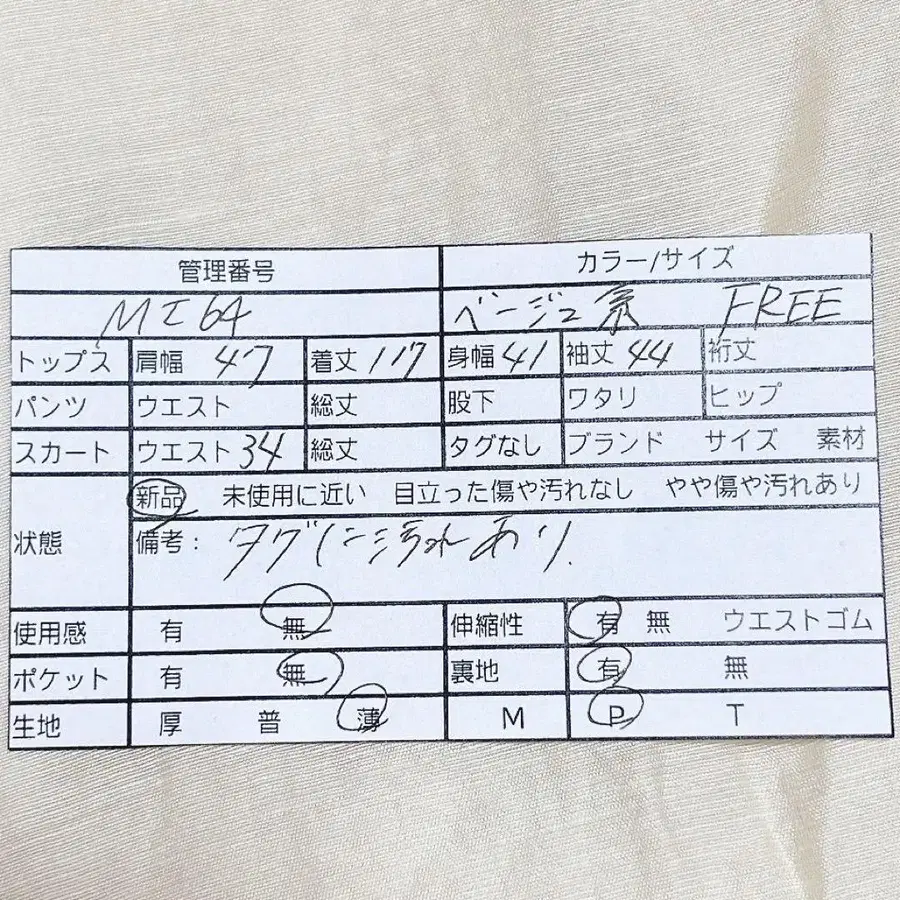 管理番号 カラー/サイズ
MI64 ベージュ系 FREE
トップス 肩幅 47 着丈 117 身幅 41 袖丈 44 裄丈
パンツ ウエスト 総丈 股下 ワタリ ヒップ
スカート ウエスト 34 総丈 タグなし ブランド サイズ 素材
状態 新品 未使用に近い 目立った傷や汚れなし やや傷や汚れあり
備考: タグに汚れあり.
使用感 有 無 伸縮性 有 無 ウエストゴム
ポケット 有 無 裏地 有 無
生地 厚 普 薄 M P T